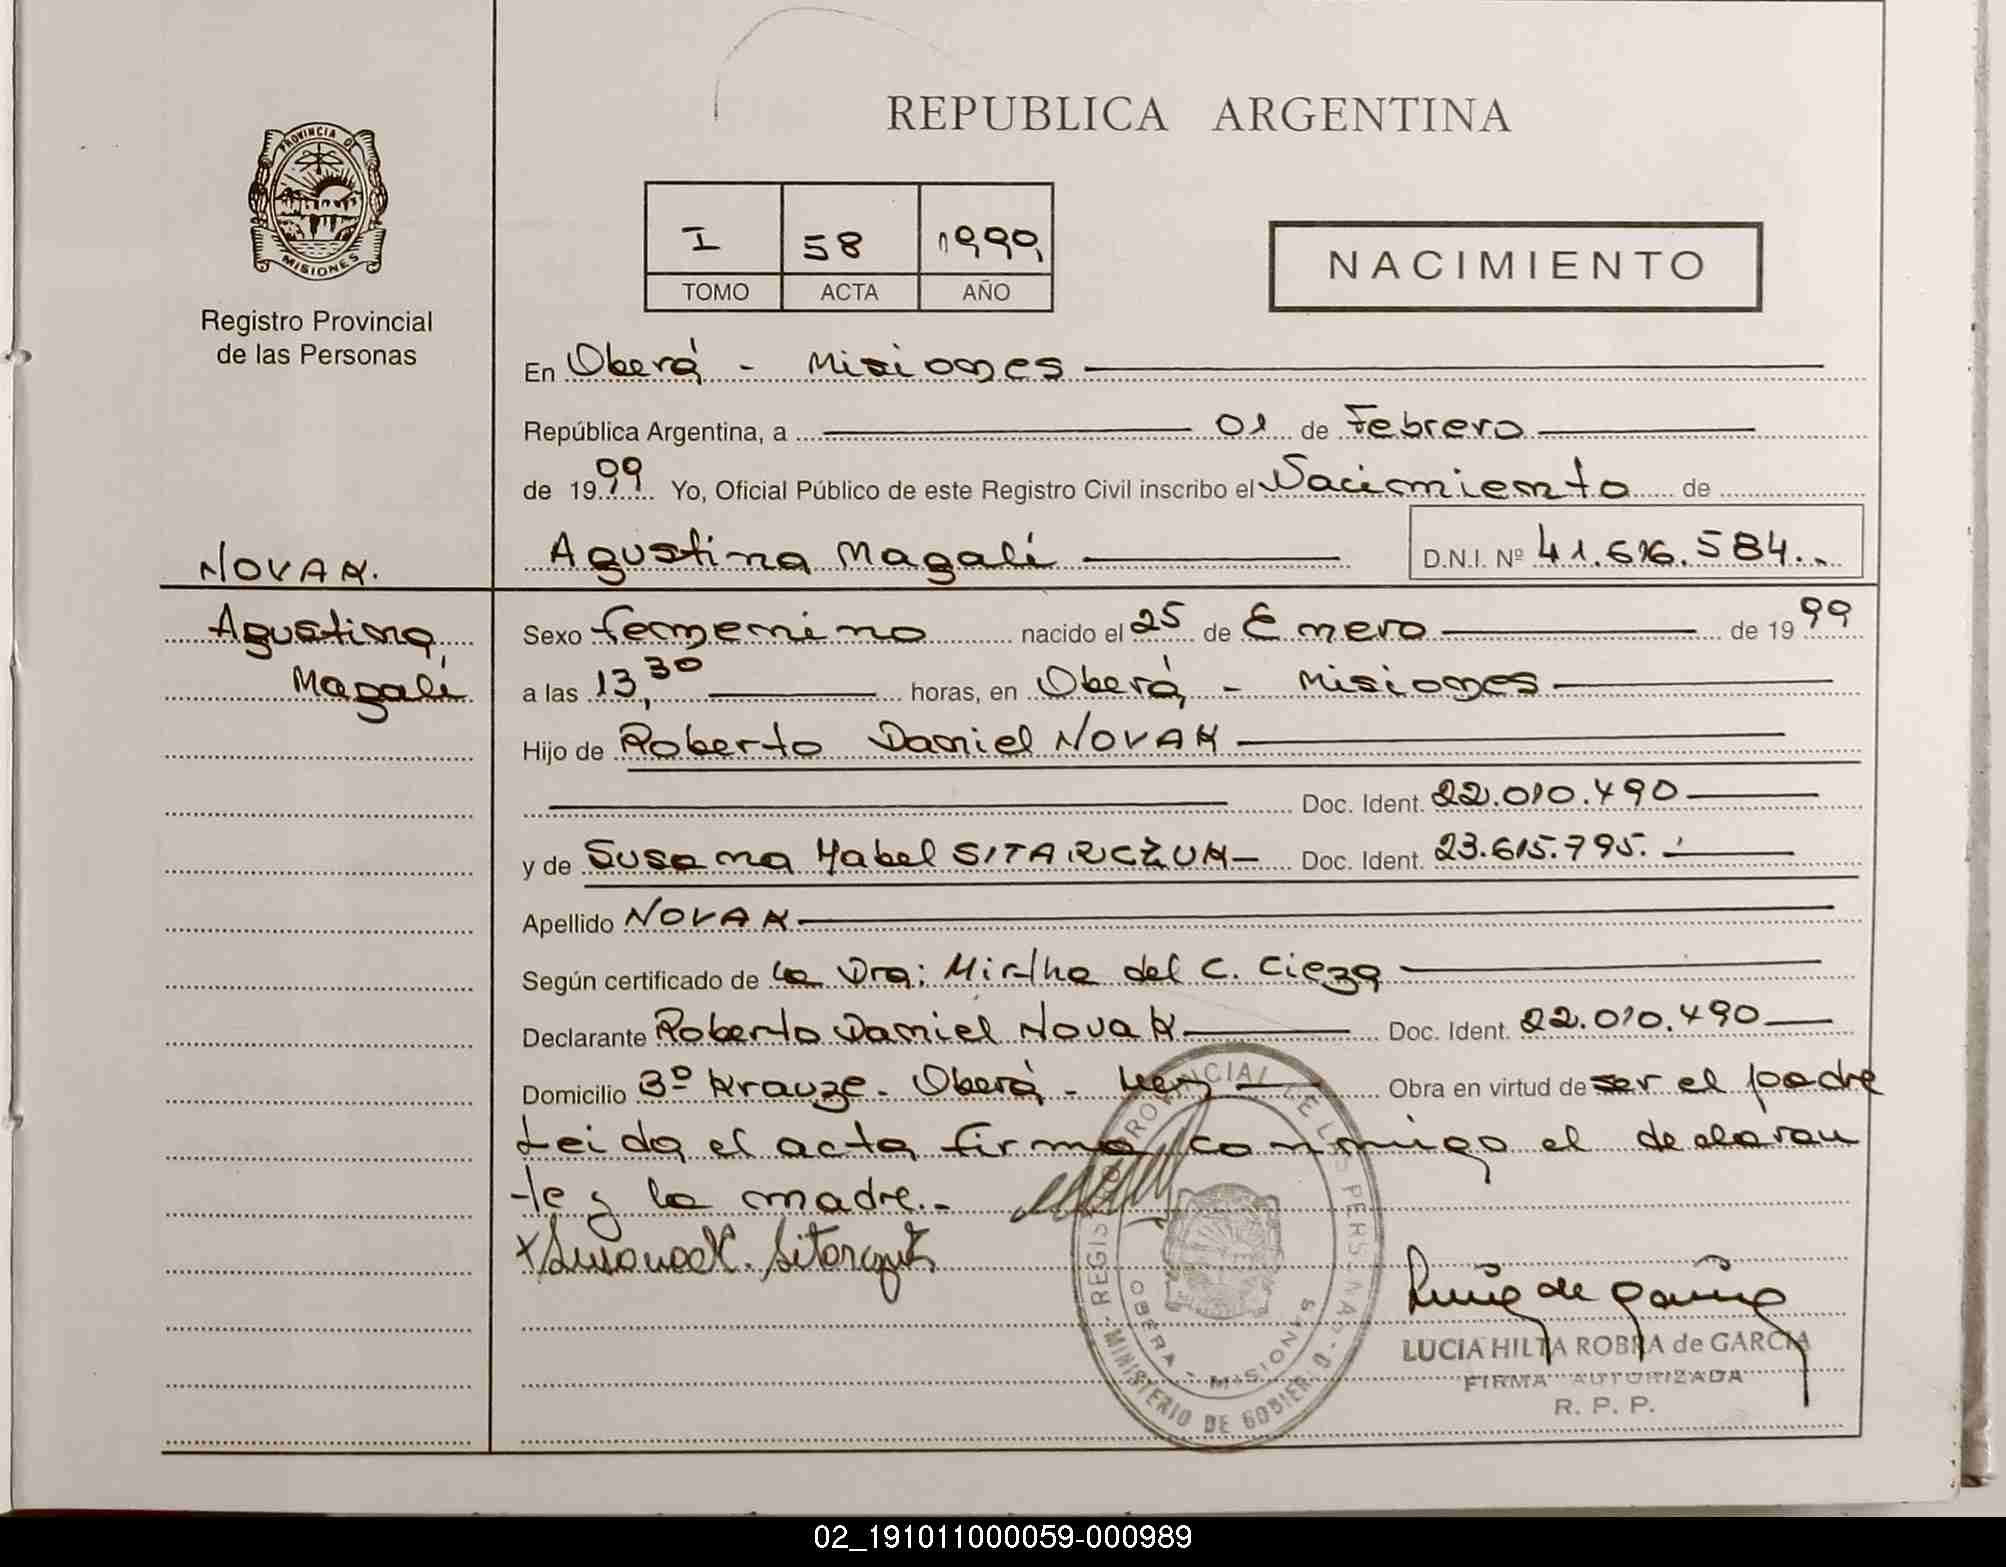 REPUBLICA ARGENTINA
PROVINCIA D
MISIONES
Registro Provincial
de las Personas
I 58 1999
TOMO ACTA AÑO
NACIMIENTO
En Oberá - Misiones
República Argentina, a 01 de Febrero
de 1999 Yo, Oficial Público de este Registro Civil inscribo el Nacimiento de
NOVAK.
Agustina Magalí D.N.I. Nº 41.616.584..
Agustina
Magalí
Sexo femenino nacido el 25 de Enero de 1999
a las 13,30 horas, en Oberá - Misiones
Hijo de Roberto Daniel NOVAK
Doc. Ident. 22.010.490
y de Susana Mabel SITARCZUK Doc. Ident. 23.615.795.
Apellido NOVAK
Según certificado de la Dra; Mirtha del C. Cieza
Declarante Roberto Daniel Novak Doc. Ident. 22.010.490
Domicilio Bº Krauze - Oberá - Obra en virtud de ser el padre
Leida el acta firma conmigo el declaran
-te y la madre.-
REGISTRO PROVINCIAL DE LAS PERSONAS - MINISTERIO DE GOBIERNO -
OBERA - MISIONES
LUCIA HILTA ROBRA de GARCIA
FIRMA AUTORIZADA
R. P. P.
02_191011000059-000989